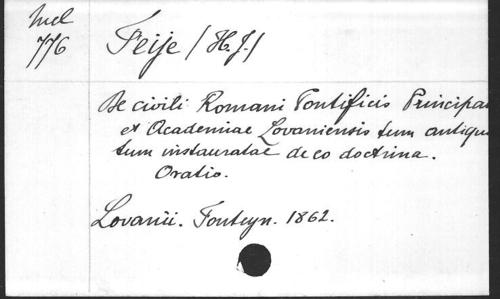 Mel
776
Feije (H.J.)
De civili Romani Pontificis Principa
et Academiae Lovaniensis tum antiqu
tum instauratae de eo doctrina.
Oratio.
Lovanii. Fonteyn. 1862.